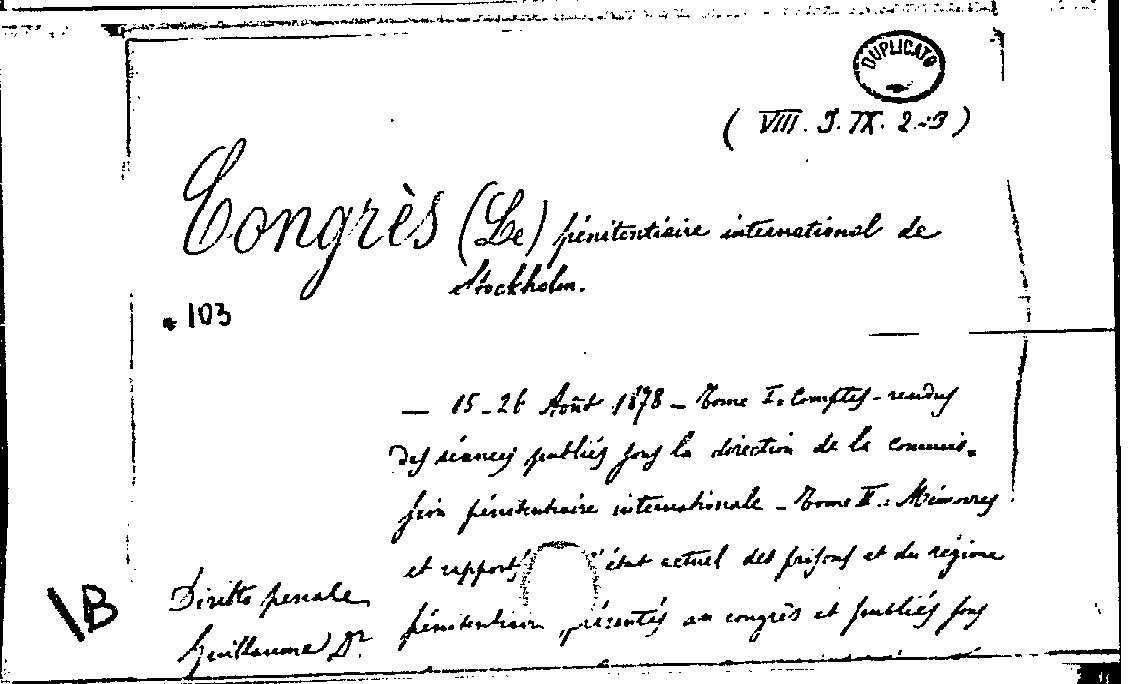 DUPLICATO
( VIII. J. IX. 2.-3 )
Congrès (Le) pénitentiaire international de
Stockholm.
103
— 15-26 Août 1878 — Tome I. Comptes-rendus
des séances publiés sous la direction de la commis-
sion pénitentiaire internationale — Tome II.: Mémoires
et rapports l'état actuel des prisons et du régime
Diritto penale
pénitentiaire, présentés au congrès et publiés sous
\B
Guillaume Dr.